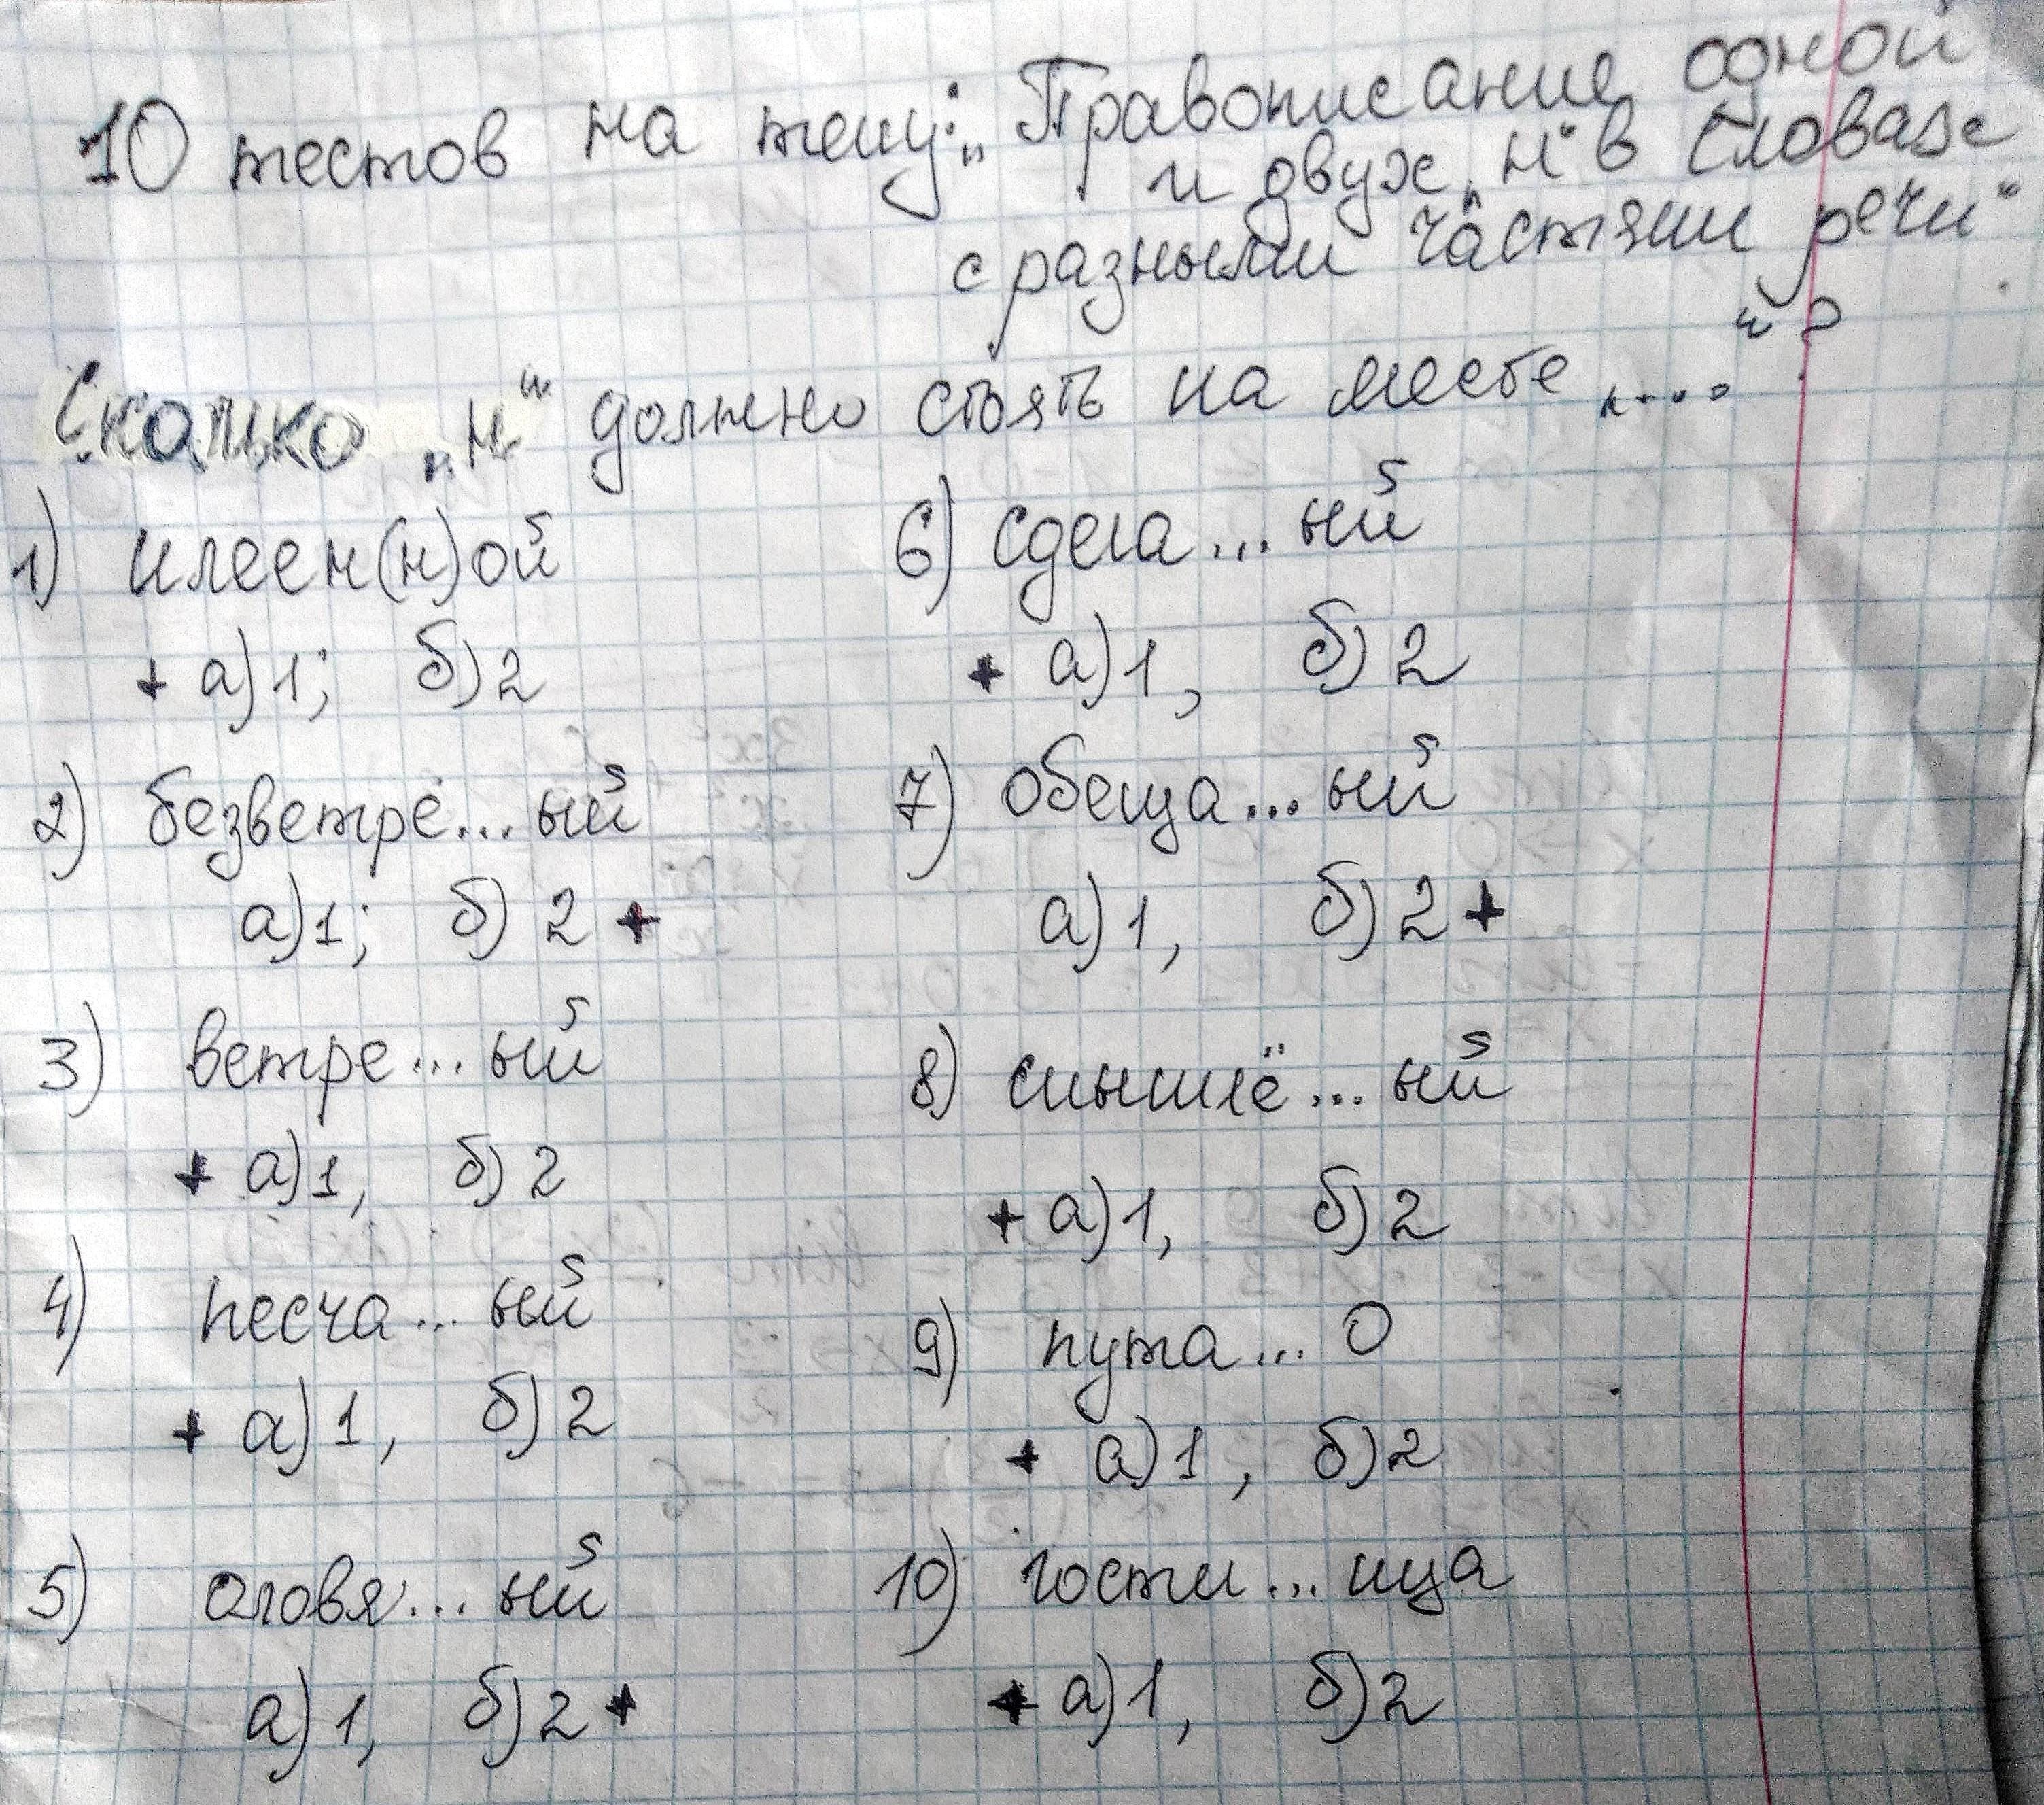 10 тестов на тему: „Правописание одной
и двух „н“ в словах
с разными частями речи“
Сколько „н“ должно стоять на месте „...“?
1) имен(н)ой
+ а) 1; б) 2
2) безветре...ый
а) 1; б) 2 +
3) ветре...ый
+ а) 1, б) 2
4) песча...ый
+ а) 1, б) 2
5) оловя...ый
а) 1, б) 2 +
6) сдела...ый
+ а) 1, б) 2
7) обеща...ый
а) 1, б) 2 +
8) смышлё...ый
+ а) 1, б) 2
9) пута...о
+ а) 1, б) 2
10) гости...ица
+ а) 1, б) 2